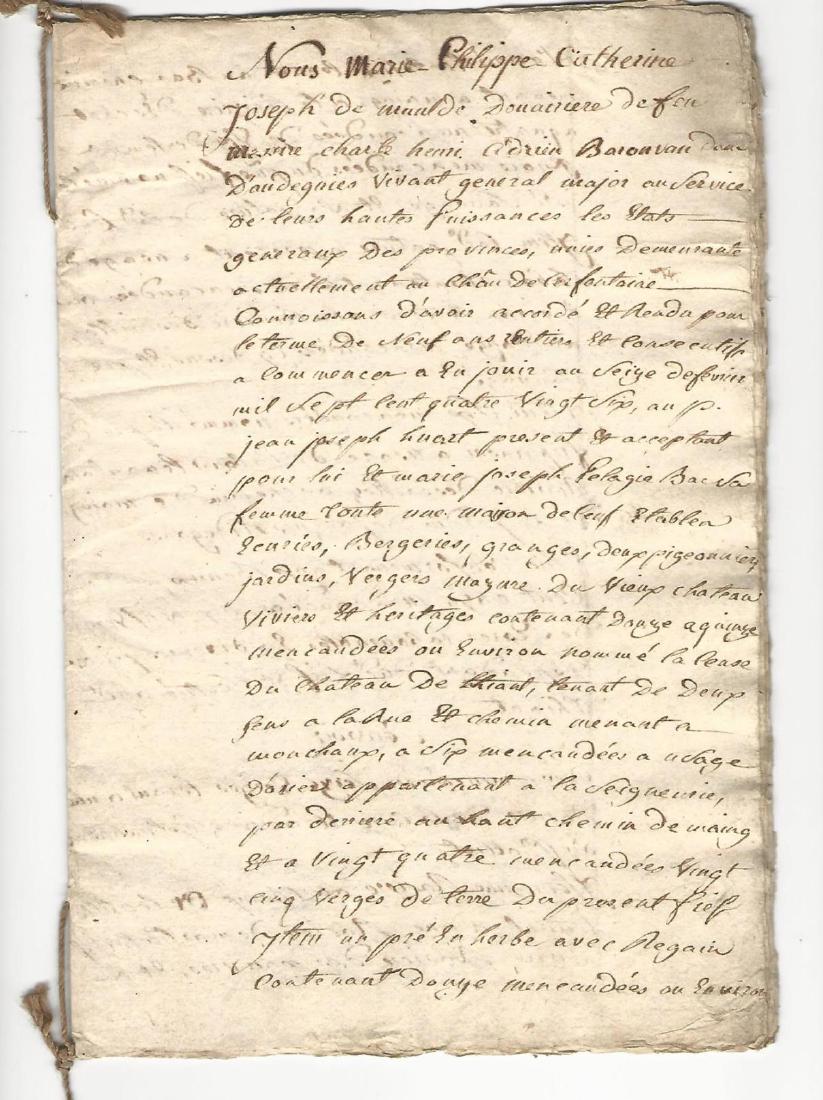 Nous Marie-Philippe Catherine
Joseph de maulde Douairiere de feu
messire charle henri Adrien Baron van
D'audegnies Vivant general major au Service
de leurs hautes Puissances les Etats
generaux Des provinces, unies Demeurante
actuellement au Châu De Cerfontaine
Connoissons d'avoir accordé Et Rendu pour
le terme De Neuf ans Entiers Et Consecutifs
a Commencer a En jouir au Seize de fevrier
mil Sept Cent quatre Vingt Six, au p.
jean joseph huart present Et acceptant
pour lui Et marie joseph Pelagie Bac Sa
femme toute une maison de Ceuf Etables
Ecuries, Bergeries, granges, deux pigeonniers,
jardins, Vergers mazure Du Vieux chateau
Viviers Et heritages contenant Douze a quinze
mencaudées ou Environ nommé la Cense
Du Chateau De thiant, tenant De Deux
sens a la Rue Et chemin menant a
monchaux, a Six mencaudées a usage
D'ariere appartenant a la Seigneurie,
par derriere au haut chemin de maing
Et a Vingt quatre mencaudées Vingt
cinq Verges de terre Du present fief
Item un pré En herbe avec Regain
Contenant Douze mencaudées ou Environ